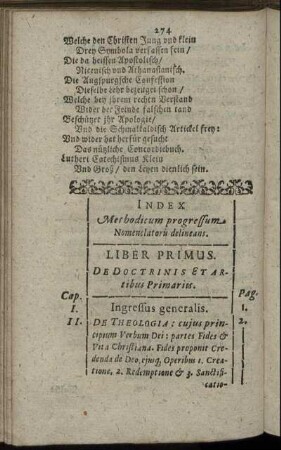 274
Welche den Christen Jung vnd klein
Drey Symbola verfassen fein /
Die da heissen Apostolisch /
Nicenisch vnd Athanasianisch.
Die Augspurgsche Confession
Dieselbe sehr bezeuget schon /
Welche bey jhrem rechten Verstand
Wider der Feinde falschen tand
Beschützet jhr Apologie /
Vnd die Schmalkaldisch Artickel frey:
Vnd wider hat herfür gesucht
Das nützliche Concordiebuch.
Lutheri Catechismus Klein
Vnd Groß / den Leyen dienlich sein.
INDEX
Methodicum progressum
Nomenclatorii delineans.
LIBER PRIMUS.
DE DOCTRINIS ET AR-
tibus Primariis.
Cap. Pag.
I. Ingressus generalis. 1.
II. DE THEOLOGIA: cujus prin- 2.
cipium Verbum Dei: partes Fides &
Vita Christiana. Fides proponit Cre-
denda de Deo, ejusq, Operibus 1. Crea-
tione, 2. Redemptione & 3. Sanctifi-
catio-